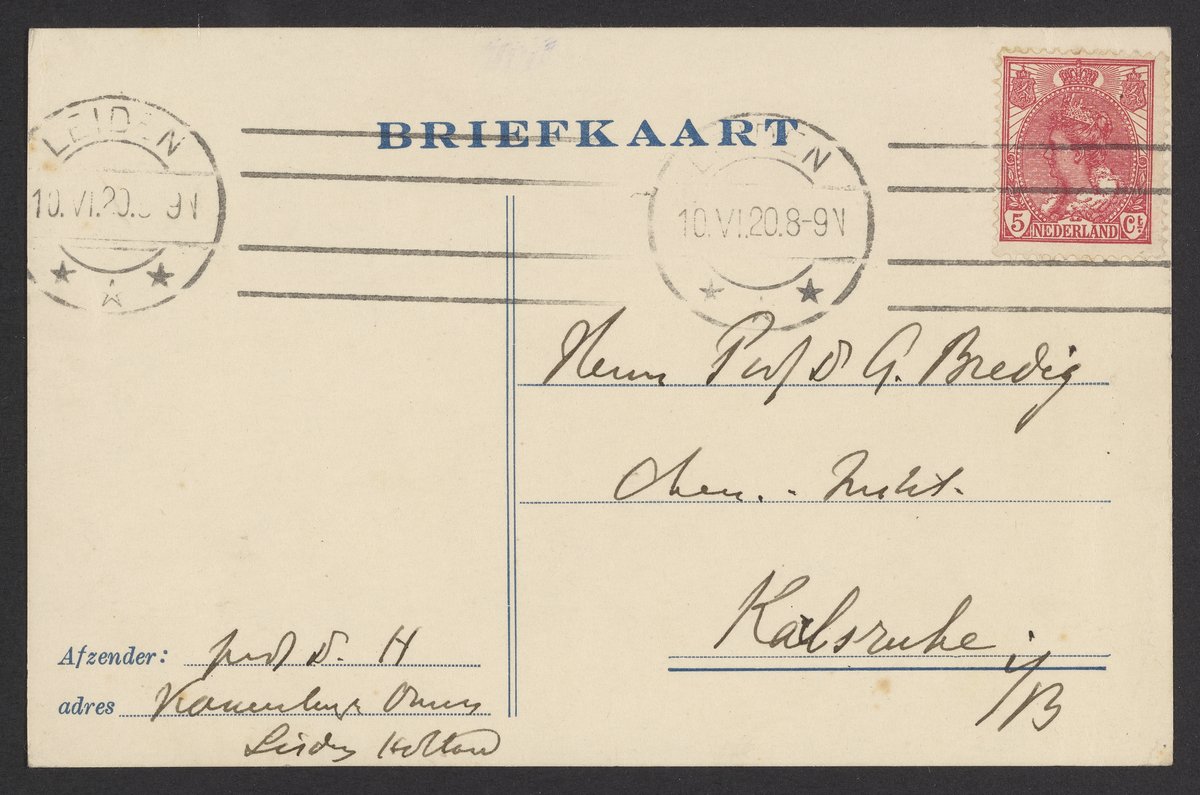 BRIEFKAART
LEIDEN
10.VI.20.8-9N
LEIDEN
10.VI.20.8-9N
5 NEDERLAND Ct
Herrn Prof Dr G. Bredig
Chem. - Instit.
Kalsruhe i/B
Afzender: prof Dr. H
adres Kamerlingh Onnes
Leiden Holland